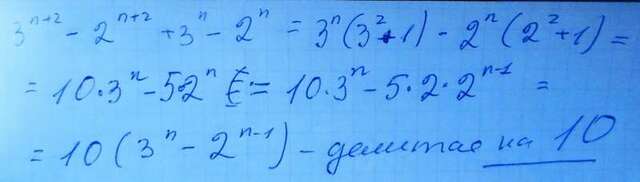 3ⁿ⁺² - 2ⁿ⁺² + 3ⁿ - 2ⁿ = 3ⁿ(3²+1) - 2ⁿ(2²+1) =
= 10·3ⁿ - 5·2ⁿ = 10·3ⁿ - 5·2·2ⁿ⁻¹ =
= 10(3ⁿ - 2ⁿ⁻¹) - делится на 10